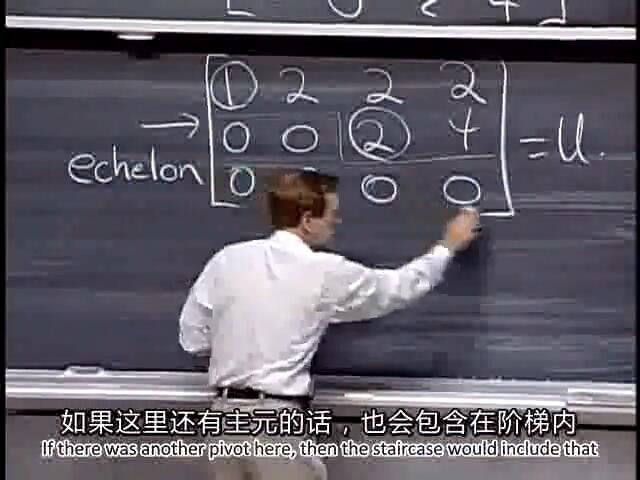 1 2 2 2
0 0 2 4 = U.
echelon 0 0 0
如果这里还有主元的话，也会包含在阶梯内
If there was another pivot here, then the staircase would include that